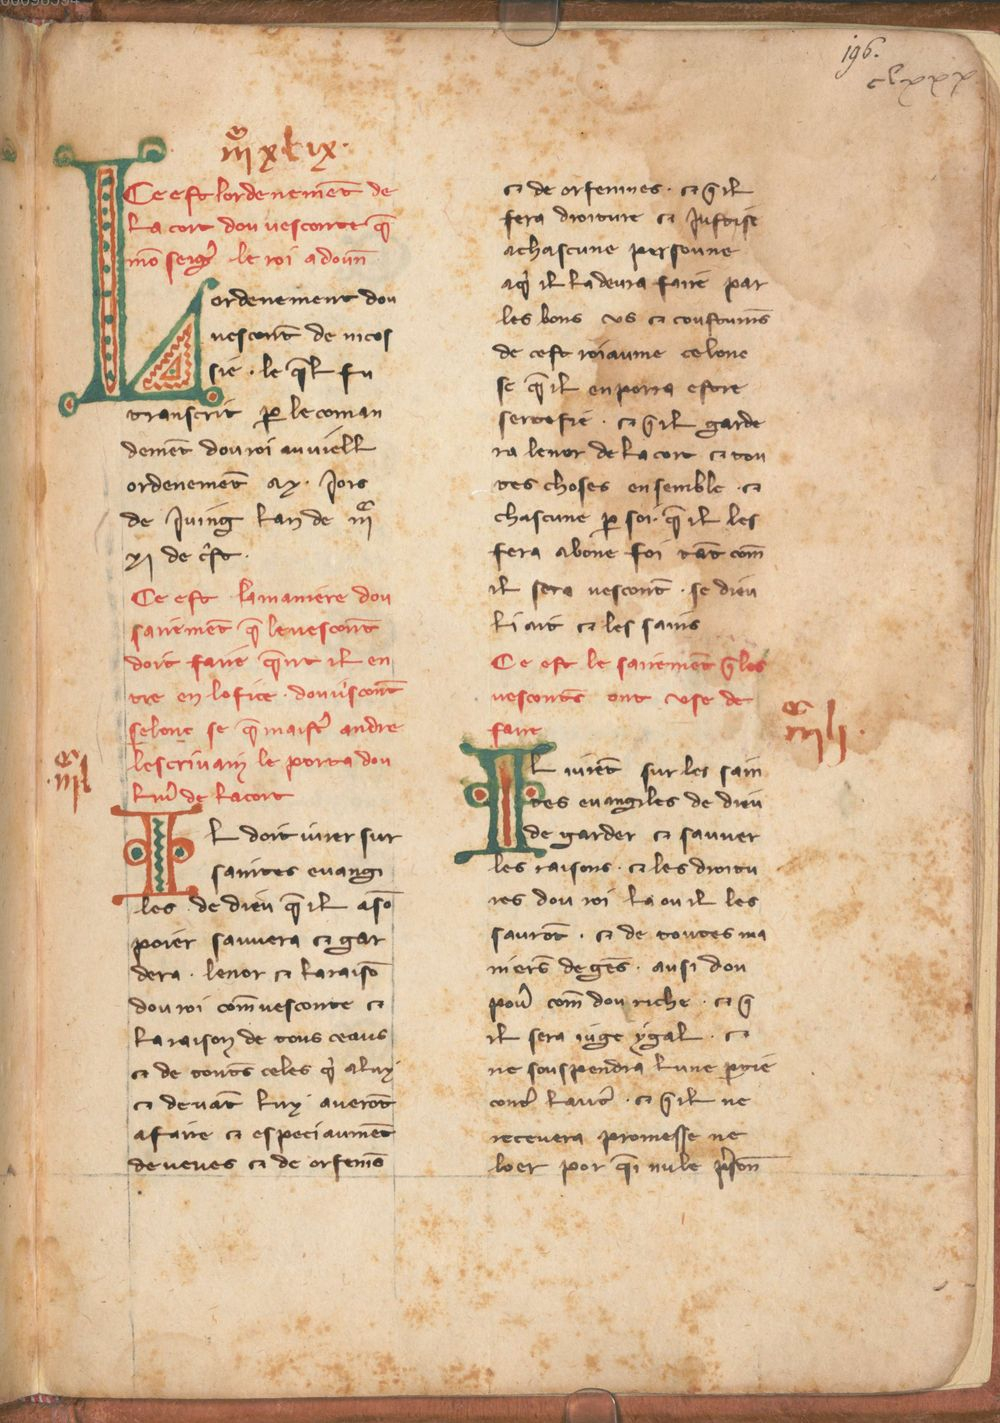 196.
clxxx
iiiͨxlix.
Ce est lordenemēt de
la cort dou vesconte q̄
mō seigʳ le roi a doun̄
Lordenement dou
vescont̄ de nicos
sie . le q̄l fu
transcrit p̱ le coman
demēt dou roi au viell
ordenemēt a x. iors
de Juing lan de m̄
xi de c̓st .
Ce est la maniere dou
sairemēt q̄ le vescont̄
doit faire q̄nt il en
tre en lofice . dou v̓scont̄
selonc se q̄ maist̓ andre
lescrivain le porta dou
liu̓ de la cort
iiiͨl
Il doit iurer sur
saintes euangi
les de dieu q̄ il a so
poier sauuera ⁊ gar
dera . lenor ⁊ la raisō
dou roi com̄ vesconte ⁊
la raison de tous ceaus
⁊ de tout̄s celes q̓ a luy
⁊ deuāt luy auerōt
a faire ⁊ especiaumēt
de veues ⁊ de orfenīs
⁊ de orfenines . ⁊ q̄ il
fera droiture ⁊ Justise
a chascune persoune
a q̓ il la deura faire par
les bons us ⁊ coustum̄s
de cest roiaume celonc
se q̄ il en porra estre
sertefie . ⁊ q̄ il garde
ra lenor de la cort ⁊ tou
tes choses ensemble ⁊
chascune p̱ soi . q̄ il les
fera a bone foi tāt com̄
il sera vescont̄ . se dieu
li ait ⁊ les sains
Ce est le sairemēt q̄ les
vescont̄s ont use de
faire
iiiͨli .
Il iurēt sur les sain
tes euangiles de dieu
de garder ⁊ sauuer
les raisons . ⁊ les droitu
res dou roi la ou il les
saurōt . ⁊ de toutes ma
niers̄ de gēs . ausi dou
pou̓ com̄ dou riche . ⁊ q̄
il sera iuge ygal . ⁊
ne souspendra lune p̱tie
cont̓ laut̓ . ⁊ q̄ il ne
receuera promesse ne
loer por q̄i nule p̱son̄